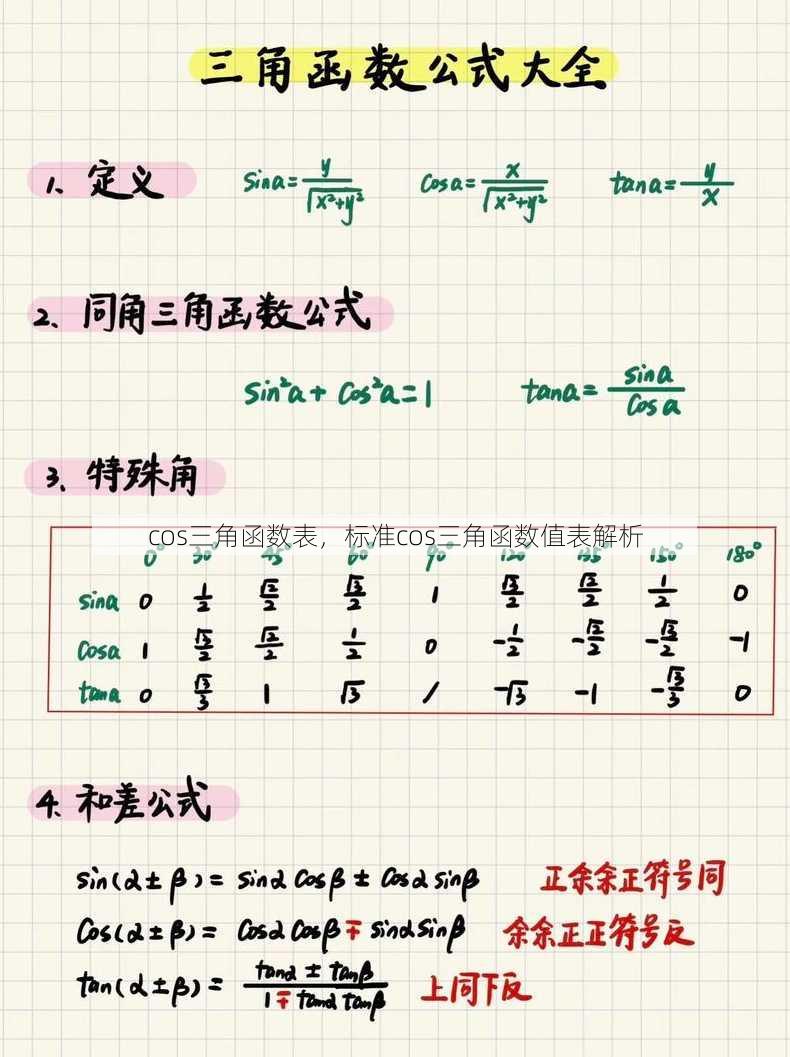 三角函数公式大全
1、定义 sina=y/√x²+y² cosa=x/√x²+y² tana=y/x
2、同角三角函数公式
sin²a+cos²a=1 tana=sina/cosa
3、特殊角
cos三角函数表，标准cos三角函数值表解析
0° 30° 45° 60° 90° 120° 135° 150° 180°
sina 0 1/2 √2/2 √3/2 1 √3/2 √2/2 1/2 0
cosa 1 √3/2 √2/2 1/2 0 -1/2 -√2/2 -√3/2 -1
tana 0 √3/3 1 √3 / -√3 -1 -√3/3 0
4、和差公式
sin(α±β)=sinαcosβ±cosαsinβ 正余余正符号同
cos(α±β)=cosαcosβ∓sinαsinβ 余余正正符号反
tan(α±β)=tanα±tanβ/1∓tanαtanβ 上同下反